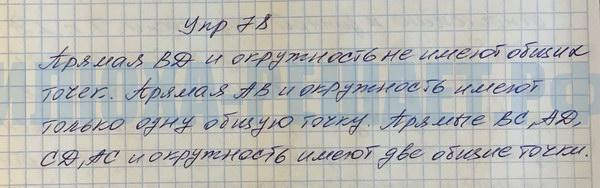 Упр 78
Прямая BD и окружность не имеют общих
точек. Прямая AB и окружность имеют
только одну общую точку. Прямые BC, AD,
CD, AC и окружность имеют две общие точки.